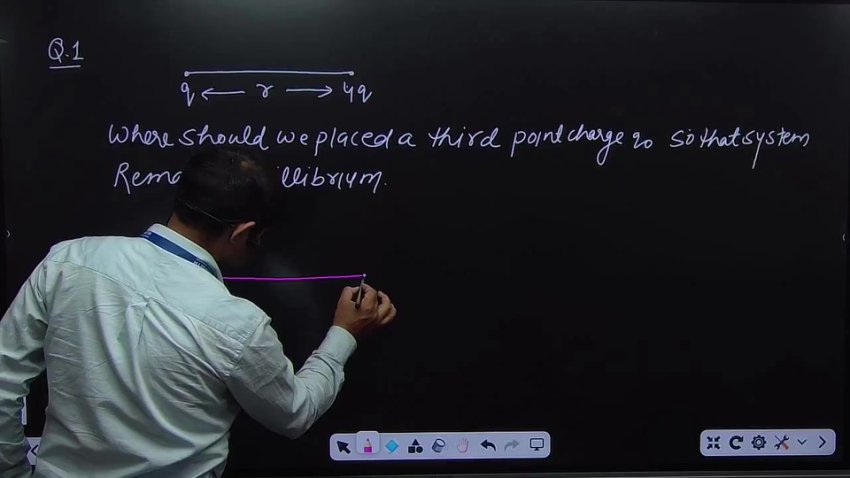 Q.1
q ← r → 4q
Where should we placed a third point charge q0 so that system